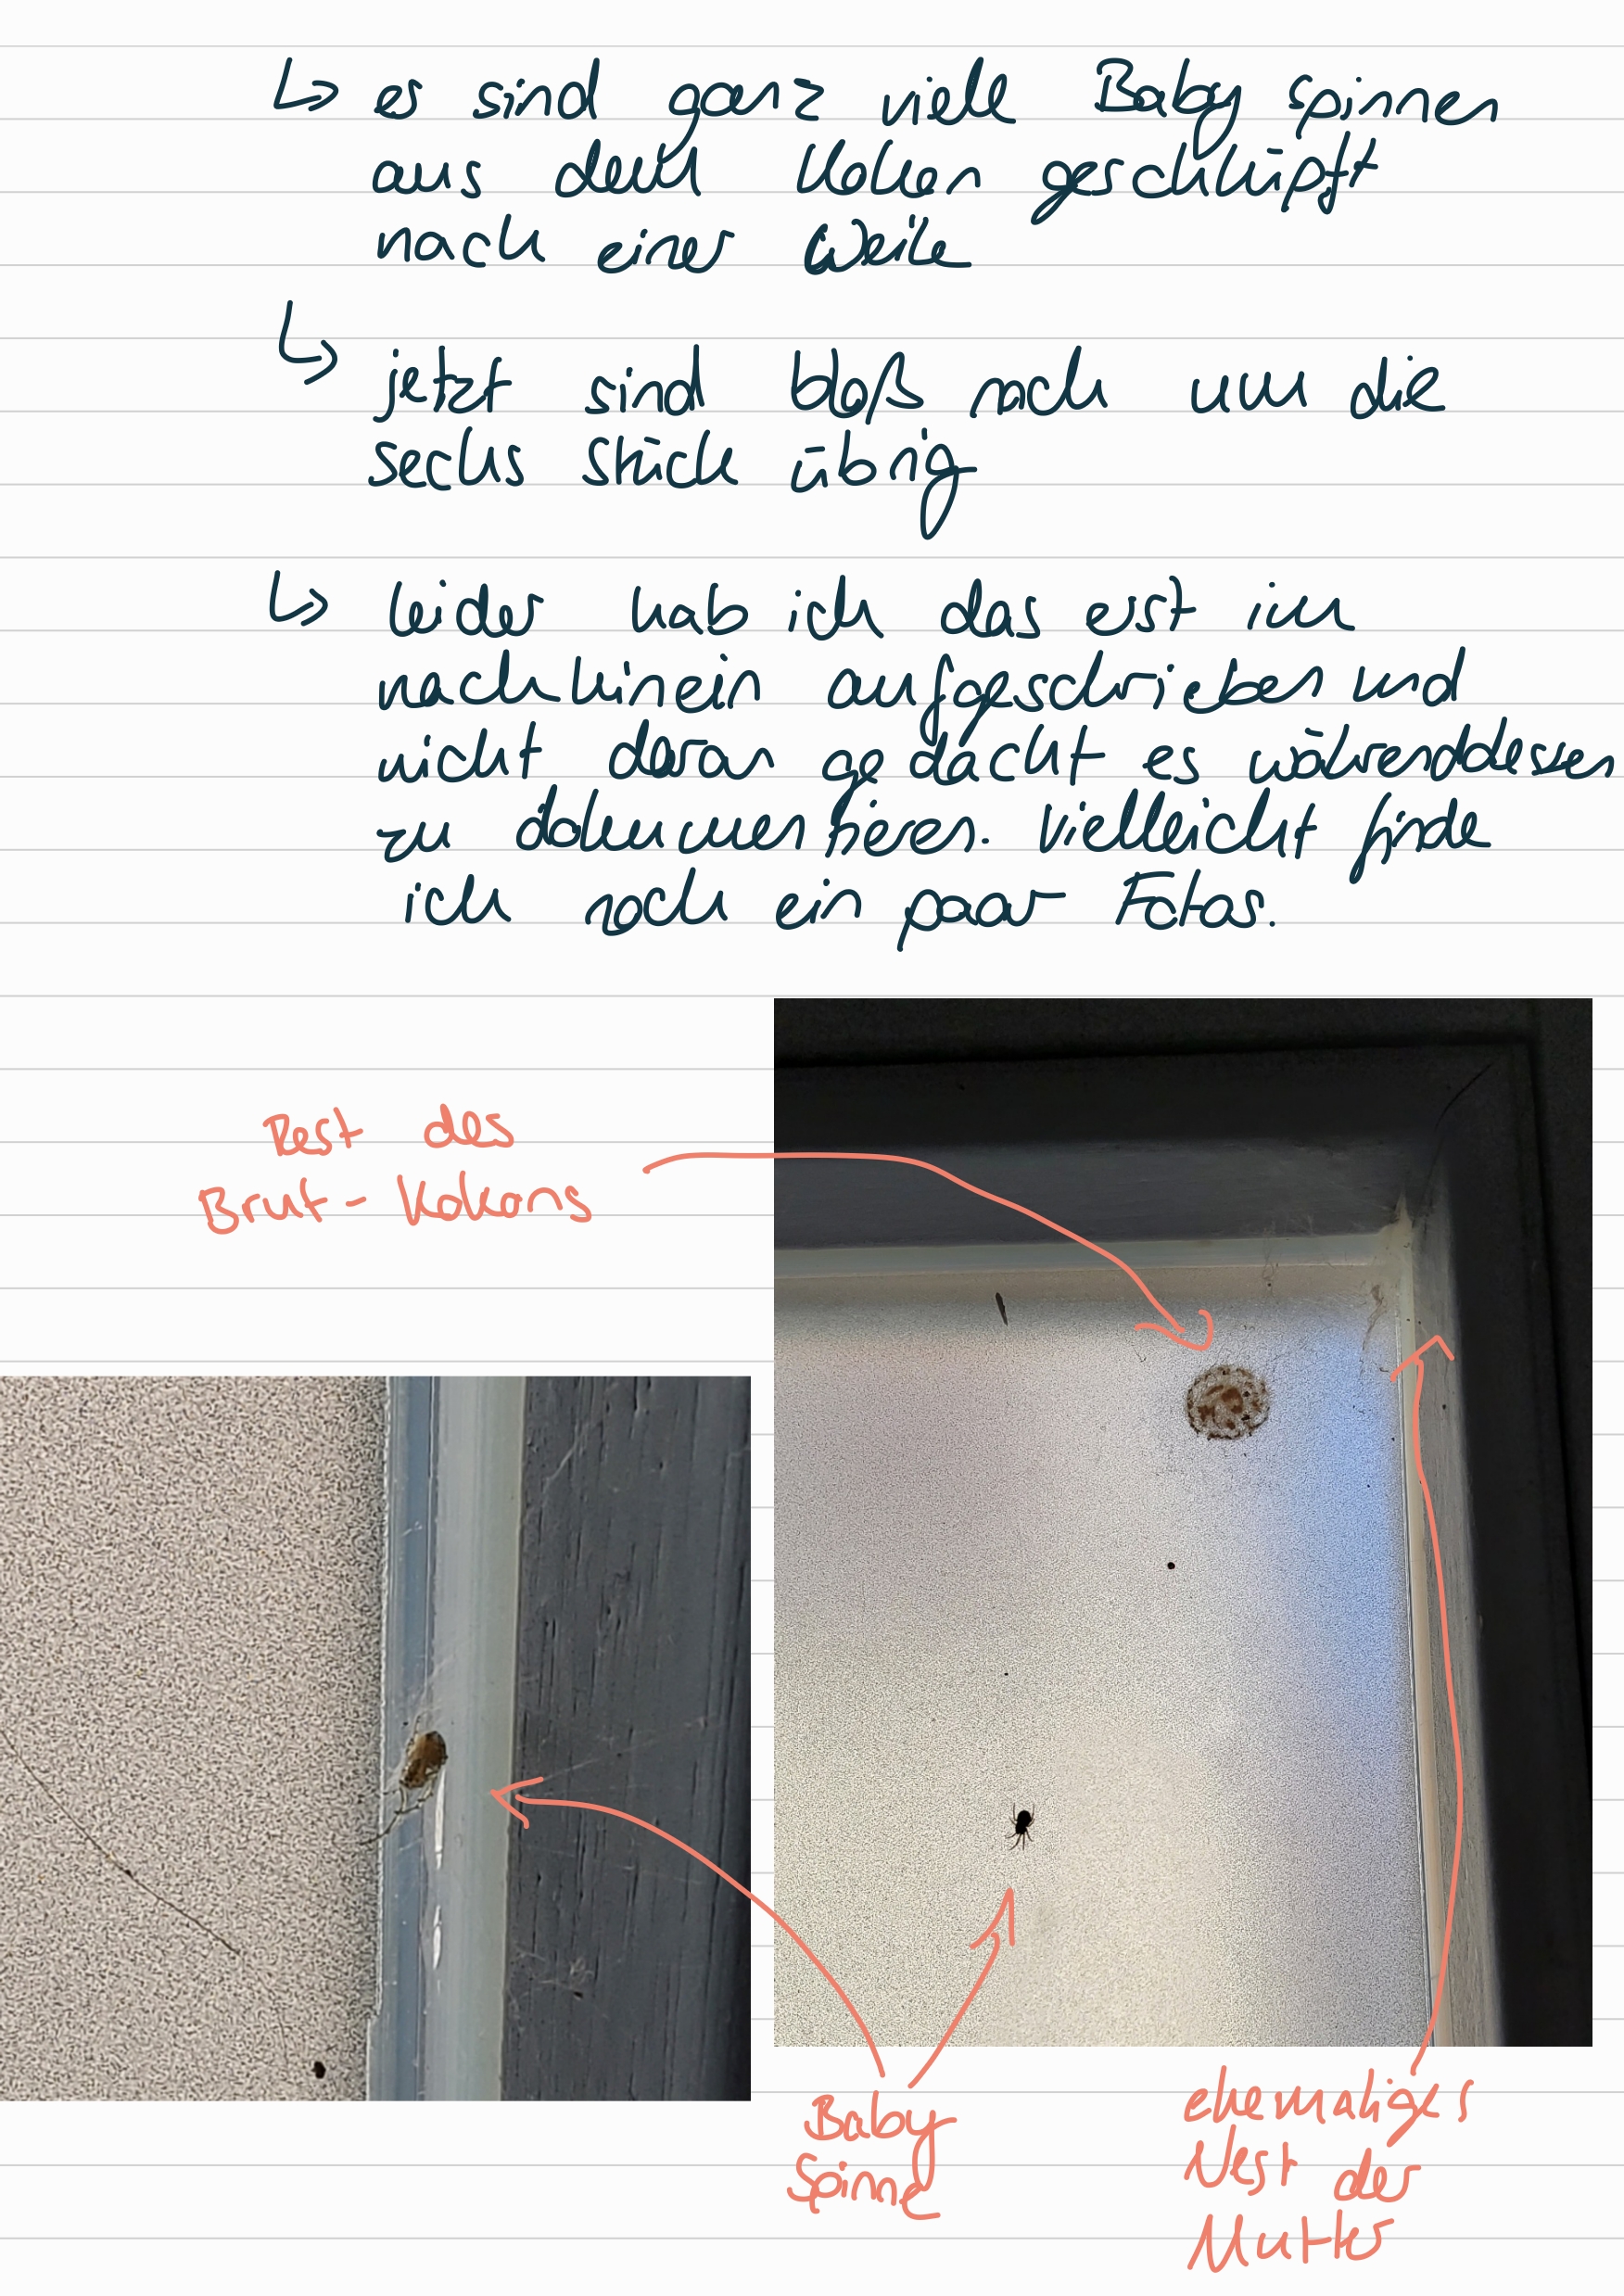 ↳ es sind ganz viele Baby spinnen
aus dem Kokon geschlüpft
nach einer Weile
↳ jetzt sind bloß noch um die
sechs stück übrig
↳ leider hab ich das erst im
nachhinein aufgeschrieben und
nicht daran gedacht es währenddessen
zu dokumentieren. Vielleicht finde
ich noch ein paar Fotos.
Rest des
Brut-Kokons
Baby
Spinne
ehemaliges
Nest der
Mutter